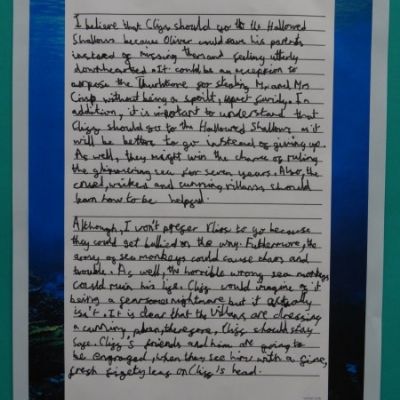 I believe that Cliff should go to the Hallowed
Shallows because Oliver could save his parents
instead of missing them and feeling utterly
downhearted. It could be an exception to
oppose the Thurlstone for stealing Mr and Mrs
Crisp without being a spoilt, family. In
addition, it is important to understand that
Cliff should go to the Hallowed Shallows as it
will be better to go instead of giving up.
As well, they might win the chance of ruling
the glimmering sea for seven years. Also, the
cruel, wicked and cunning villains should
learn how to be helpful.
Although, I won't prefer Cliff to go because
they could get bullied on the way. Futhermore, the
army of sea monkeys could cause chaos and
trouble. As well, the horrible wrong sea monkeys
could ruin his life. Cliff would imagine as it
being a fearsome nightmare but it actually
isn't. It is clear that the villans are
a cunning, plan, therefore, Cliff should stay
safe. Cliff's friends and him are going to
be engraged, when they see him with a fine,
fresh on Cliff's head.